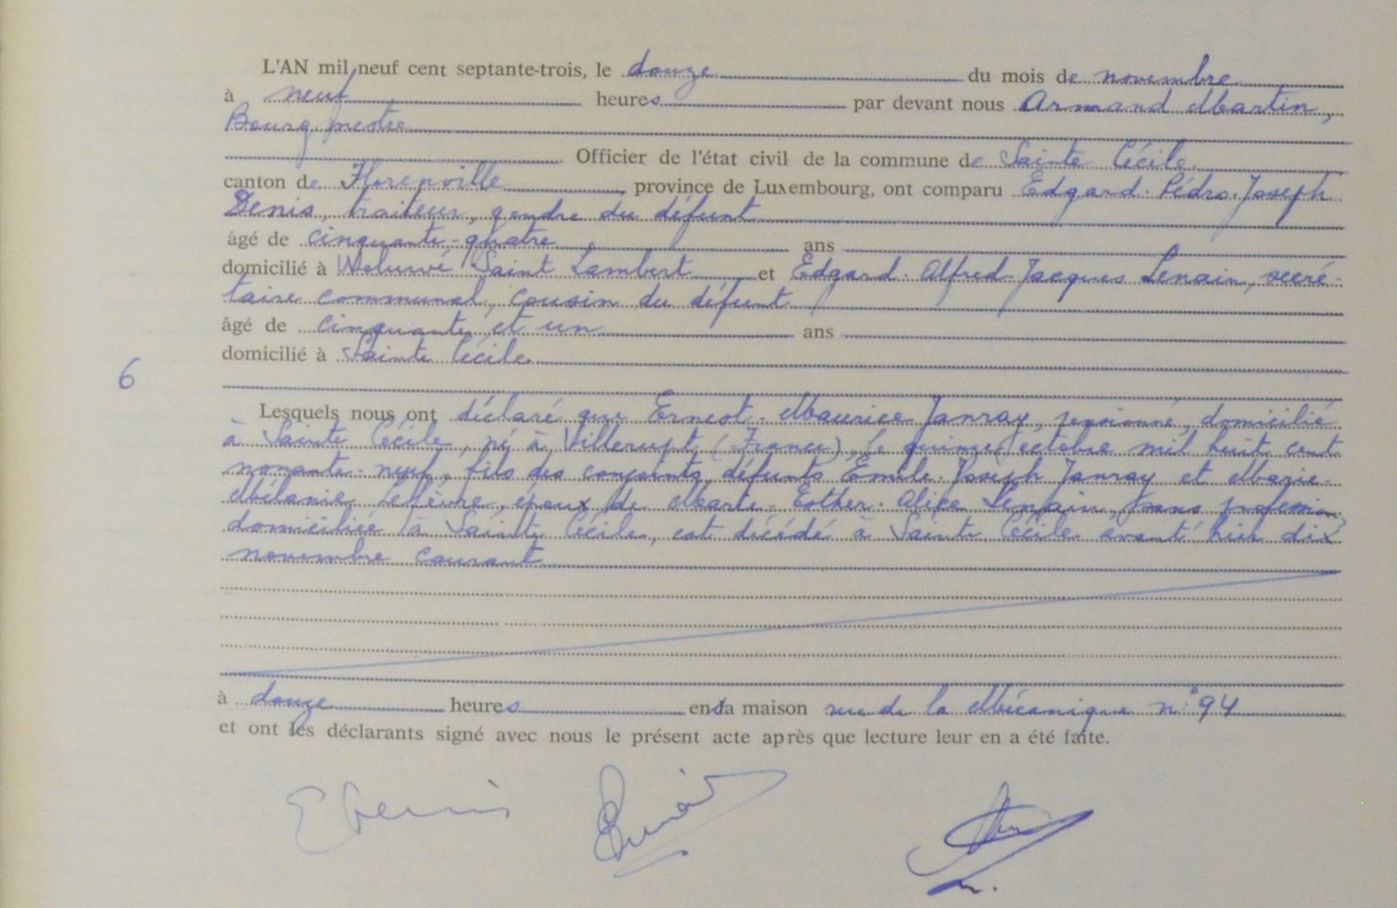 L'AN mil neuf cent septante-trois, le douze du mois de novembre
à neuf heures par devant nous Armand Martin,
Bourgmestre
Officier de l'état civil de la commune de Sainte Cécile
canton de Florenville, province de Luxembourg, ont comparu Edgard-Pédro-Joseph
Denis, traiteur, gendre du défunt
âgé de cinquante-quatre ans
domicilié à Woluwé Saint Lambert et Edgard-Alfred-Jacques Lenain, secré-
taire communal, cousin du défunt
âgé de cinquante et un ans
domicilié à Sainte Cécile
6
Lesquels nous ont déclaré que Ernest-Maurice Janray, pensionné, domicilié
à Sainte Cécile, né à Villerupt (France), le quinze octobre mil huit cent
nonante-neuf, fils des conjoints défunts Emile-Joseph Janray et Marie-
Mélanie Lefèvre, époux de Marie-Esther-Alice Lenain, sans profession
domiciliée à Sainte Cécile, est décédé à Sainte Cécile avant hier dix
novembre courant
à douze heures en sa maison rue de la Mécanique n° 94
et ont les déclarants signé avec nous le présent acte après que lecture leur en a été faite.
E Denis